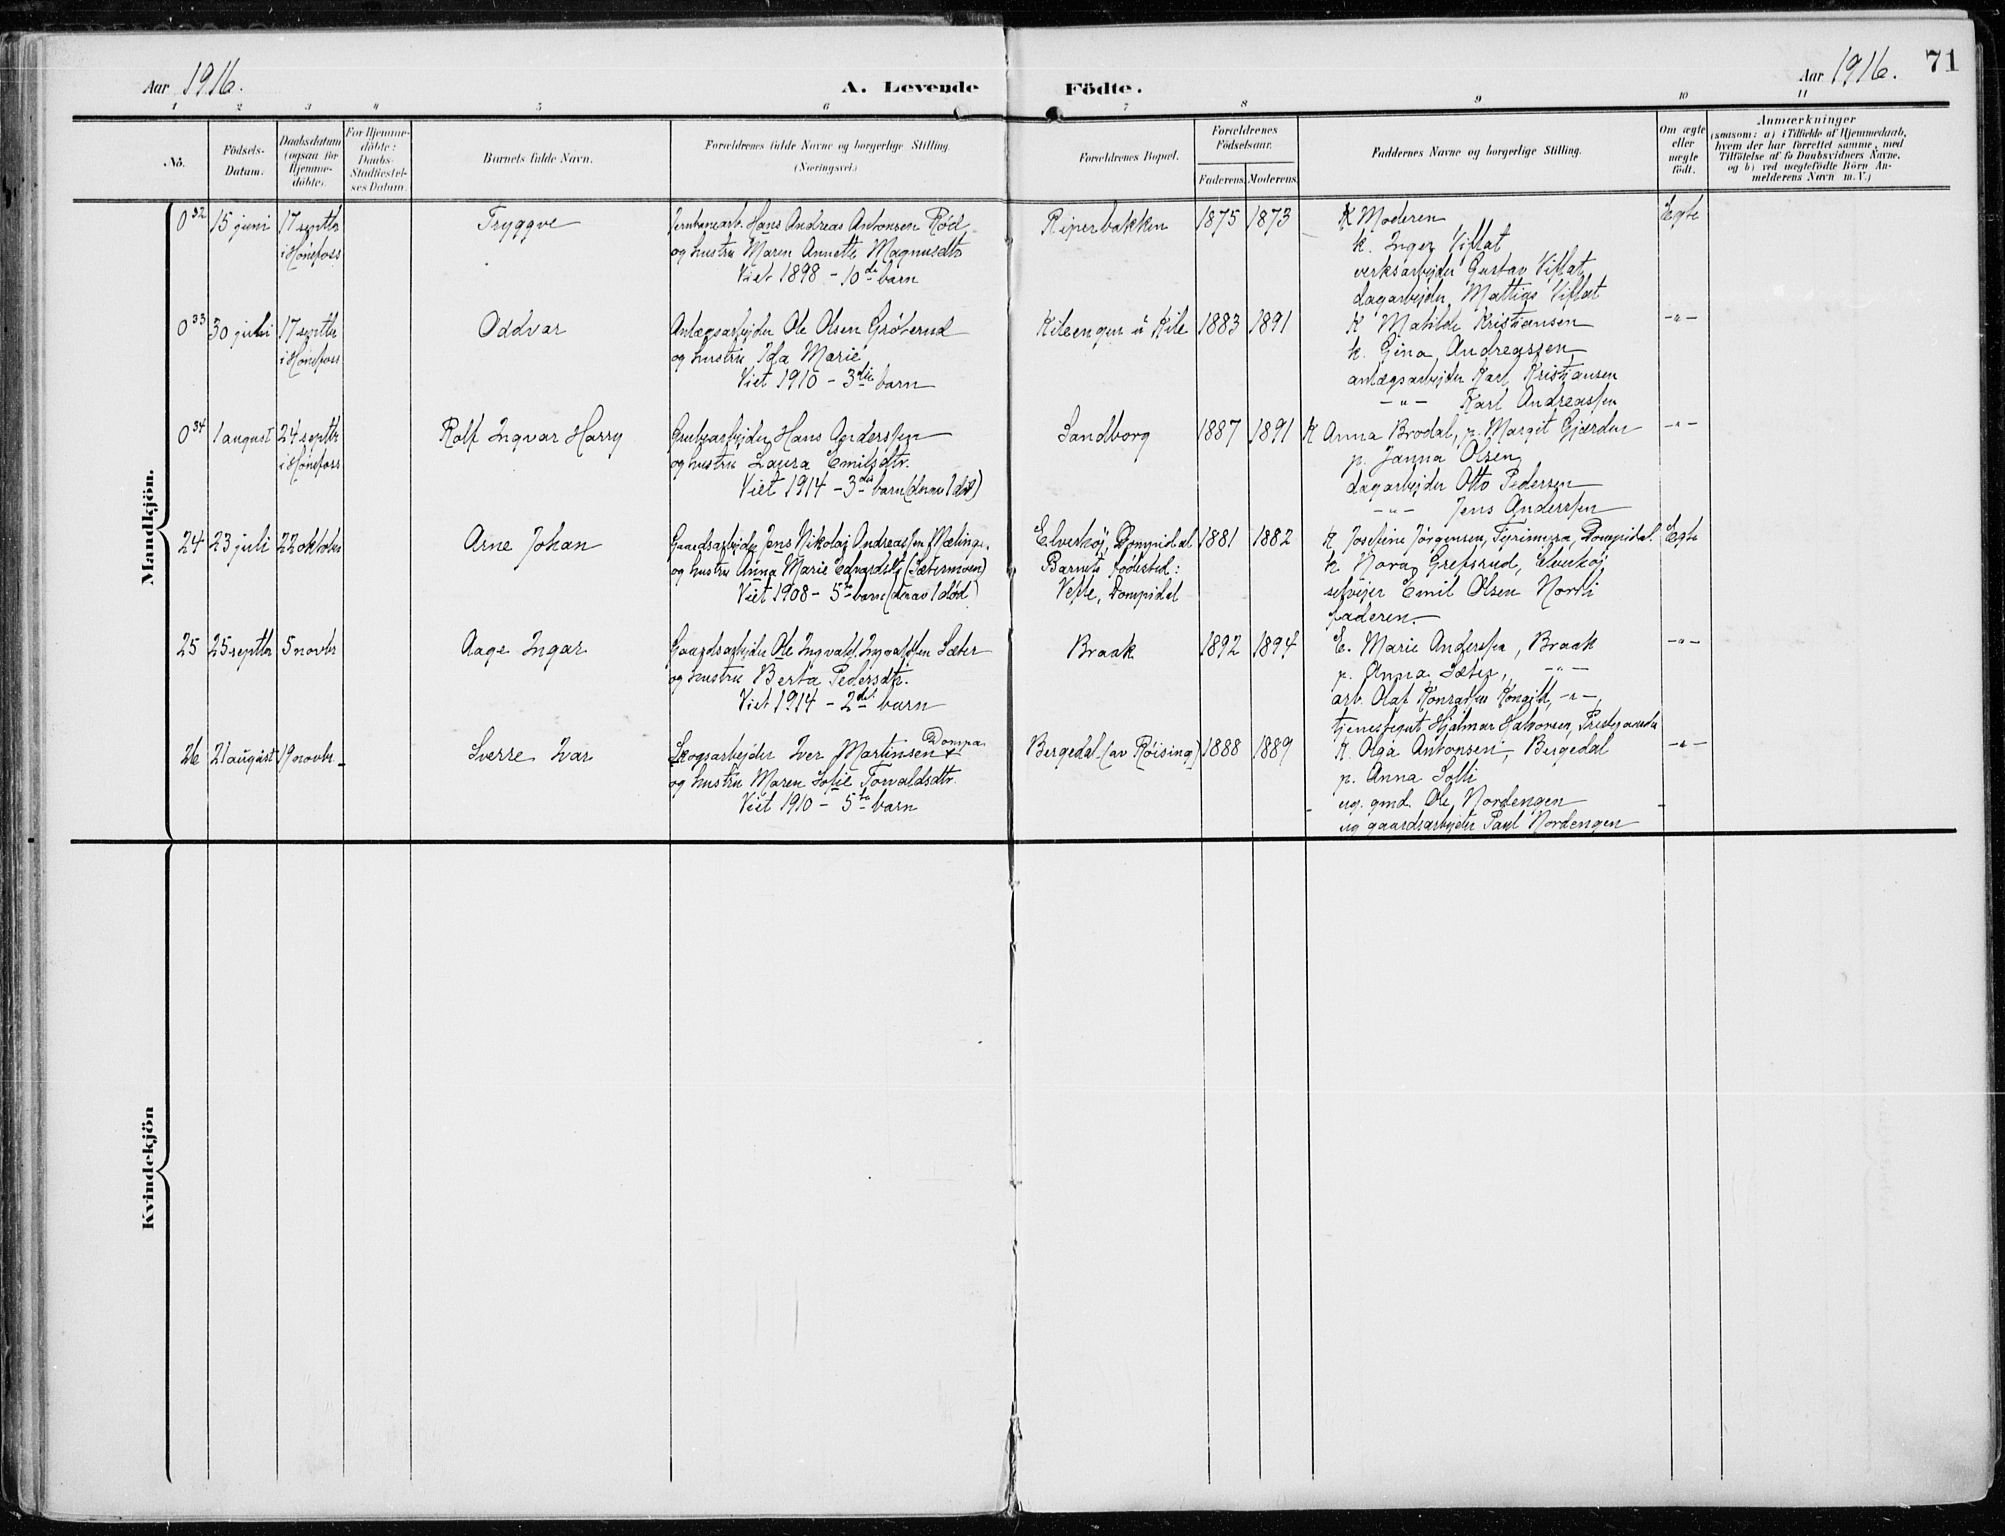 Aar 1916.
A. Levende Födte.
Aar 1916.
71
1 2 3 4 5 6 7 8 9 10 11
No.
Födsels-Datum.
Daabsdatum (ogsaa for Hjemme-döbte).
For Hjemme-döbte: Daabs-Stadfæstel-ses Datum.
Barnets fulde Navn.
Forældrenes fulde Navne og borgerlige Stilling.
(Næringsvei.)
Forældrenes Bopæl.
Forældrenes Födselsaar.
Faderens. Moderens.
Faddernes Navne og borgerlige Stilling.
Om ægte eller uægte födt.
Anmærkninger
(saasom: a) i Tilfælde af Hjemmedaab,
hvem der har forrettet samme, med
Tilföielse af to Daabsvidners Navne,
og b) ved uægtefödte Börn An-
melderens Navn m. V.)
Mandkjön.
0 32 15 juni 17 septbr i Hønefoss
Tryggve
Jernbanearb. Hans Andreas Antonsen Rød
og hustru Maren Annette Magnusdtr
Viet 1898 - 10de barn
Riperbakken 1875 1873
K Moderen
k. Inger Viflat
verksarbejder Gustav Viflat
dagarbejder Mattias Viflat
Egte
0 33 30 juli 17 septbr i Hønefoss
Oddvar
Anlægsarbejder Ole Olsen Grøterud
og hustru Ida Marie
Viet 1910 - 3die barn
Kileengen u Kile 1883 1891
K Matilde Kristiansen
k. Gina Andreassen
anlægsarbejder Karl Kristiansen
-"- Karl Andreassen
-"-
0 34 1 august 24 septbr i Hønefoss
Rolf Ingvar Harry
Grubearbejder Hans Anderssen
og hustru Laura Emilsdtr.
Viet 1914 - 3die barn (derav 1 død)
Sandborg 1887 1891
K Anna Brodal, p. Margit Gjærden
p. Janna Olsen
dagarbejder Otto Pedersen
-"- Jens Anderssen
-"-
24 23 juli 22 oktober
Arne Johan
Gaardsarbejder Jens Nikolaj Andreassen
og hustru Anna Marie Edvardsdtr (Sætermoen)
Viet 1908 - 5te barn (derav 1 død)
Elverhøj, Dompidal
Barnets fødested:
Vefle, Dompidal
1881 1882
K Josefine Jørgensen, Tyrimyra, Dompidal
k Nora Grefsrud, Elverhøj
selvejer Emil Olsen Nordli
faderen.
Egte
25 25 septbr 5 novbr
Aage Ingar
Gaardsarbejder Ole Ingvald Ingvaldsen Sæter
og hustru Berta Pedersdtr.
Viet 1914 - 2det barn
Braak 1892 1894
E. Marie Anderssen, Braak
p. Anna Sæter, -"-
arb. Olaf Konradsen -"-
tjenestegut Hjalmar Halvorsen,
-"-
26 21 august 19 novbr.
Sverre Ivar
Skogsarbejder Iver Martinsen Dompa
og hustru Maren Sofie Torvaldsdtr.
Viet 1910 - 5te barn
Bergedal (av Røising) 1888 1889
K. Olga Antonsen, Bergedal
p. Anna Solli
ug. gmd. Ole Nordengen
ug gaardsarbejder Paul Nordengen
-"-
Kvindekjön